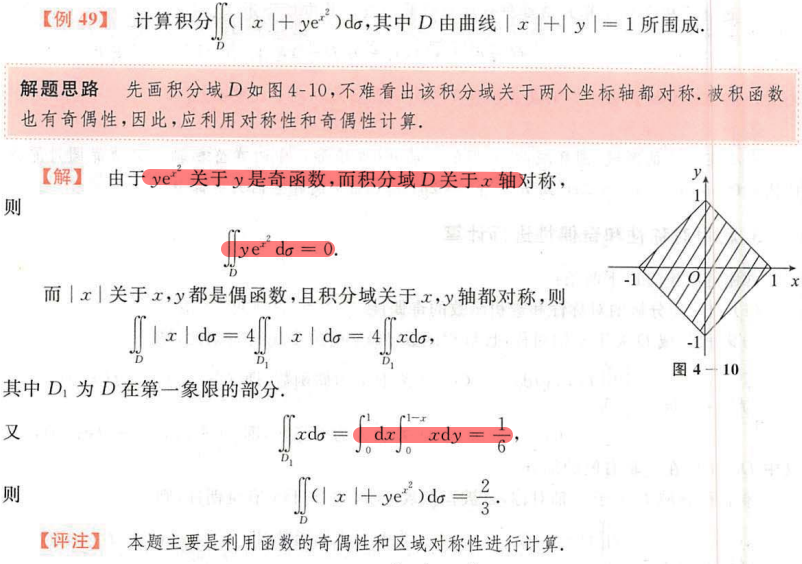 【例 49】 计算积分∬_D(|x|+ye^{x²})dσ,其中 D 由曲线|x|+|y|=1 所围成.
解题思路 先画积分域 D 如图 4-10,不难看出该积分域关于两个坐标轴都对称.被积函数
也有奇偶性,因此,应利用对称性和奇偶性计算.
【解】 由于 ye^{x²} 关于 y 是奇函数,而积分域 D 关于 x 轴对称,
则
∬_D ye^{x²}dσ = 0.
而|x|关于 x,y 都是偶函数,且积分域关于 x,y 轴都对称,则
∬_D|x|dσ = 4∬_{D₁}|x|dσ = 4∬_{D₁}xdσ,
其中 D₁ 为 D 在第一象限的部分.
又 ∬_{D₁}xdσ = ∫_0^1 dx∫_0^{1-x} xdy = 1/6,
则 ∬_D(|x|+ye^{x²})dσ = 2/3.
【评注】 本题主要是利用函数的奇偶性和区域对称性进行计算.
y
1
-1 O 1 x
-1
图 4-10